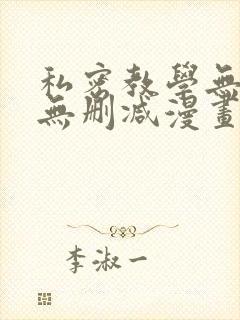 私密教學無
無刪减漫畫
李淑一